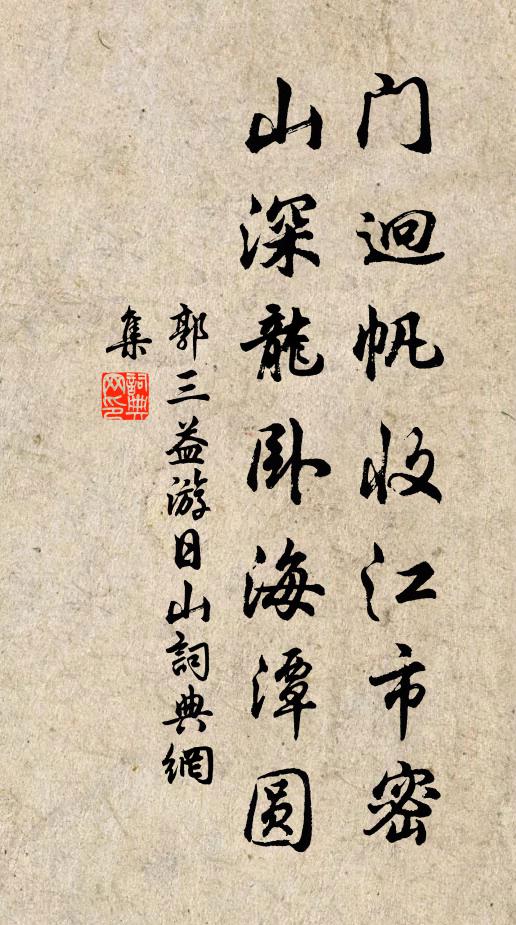 门迥帆收江市密
山深龍卧海潭圆
郭三益游日山詞典網
集
詞典网印